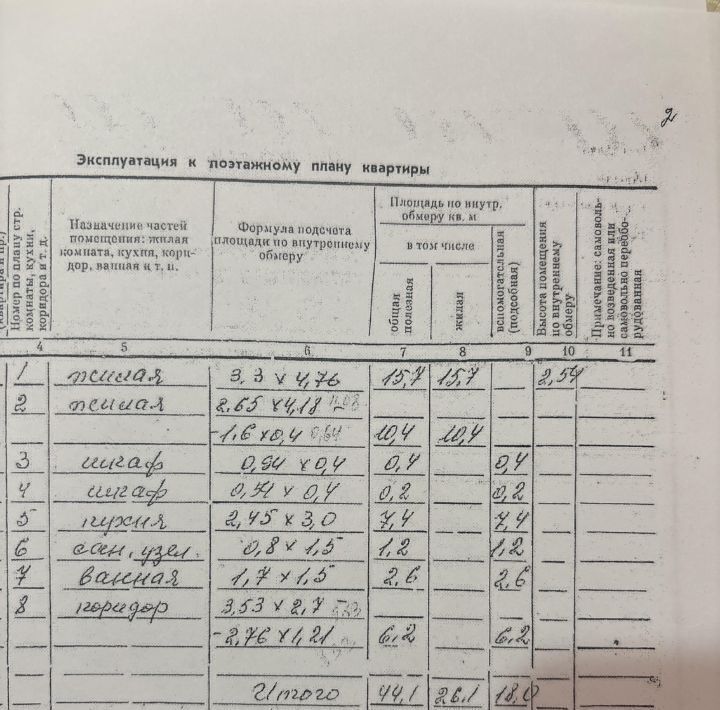 2
Эксплуатация к поэтажному плану квартиры
Номер по плану стр. комнаты, кухни, коридора и т. д.
Назначение частей помещения: жилая комната, кухня, коридор, ванная и т. п.
Формула подсчета площади по внутреннему обмеру
Площадь по внутр. обмеру кв. м
в том числе
общая полезная
жилая
вспомогательная (подсобная)
Высота помещения по внутреннему обмеру
Примечание: самовольно возведенная или самовольно переоборудованная
4 5 6 7 8 9 10 11
1 жилая 3,3 x 4,76 15,7 15,7 2,54
2 жилая 2,65 x 4,18
-1,6 x 0,4 0,64 10,4 10,4
3 шкаф 0,94 x 0,4 0,4 0,4
4 шкаф 0,51 x 0,4 0,2 0,2
5 кухня 2,45 x 3,0 7,4 7,4
6 сан. узел. 0,8 x 1,5 1,2 1,2
7 ванная 1,7 x 1,5 2,6 2,6
8 коридор 3,53 x 2,7
-2,76 x 1,21 6,2 6,2
Итого 44,1 26,1 18,0